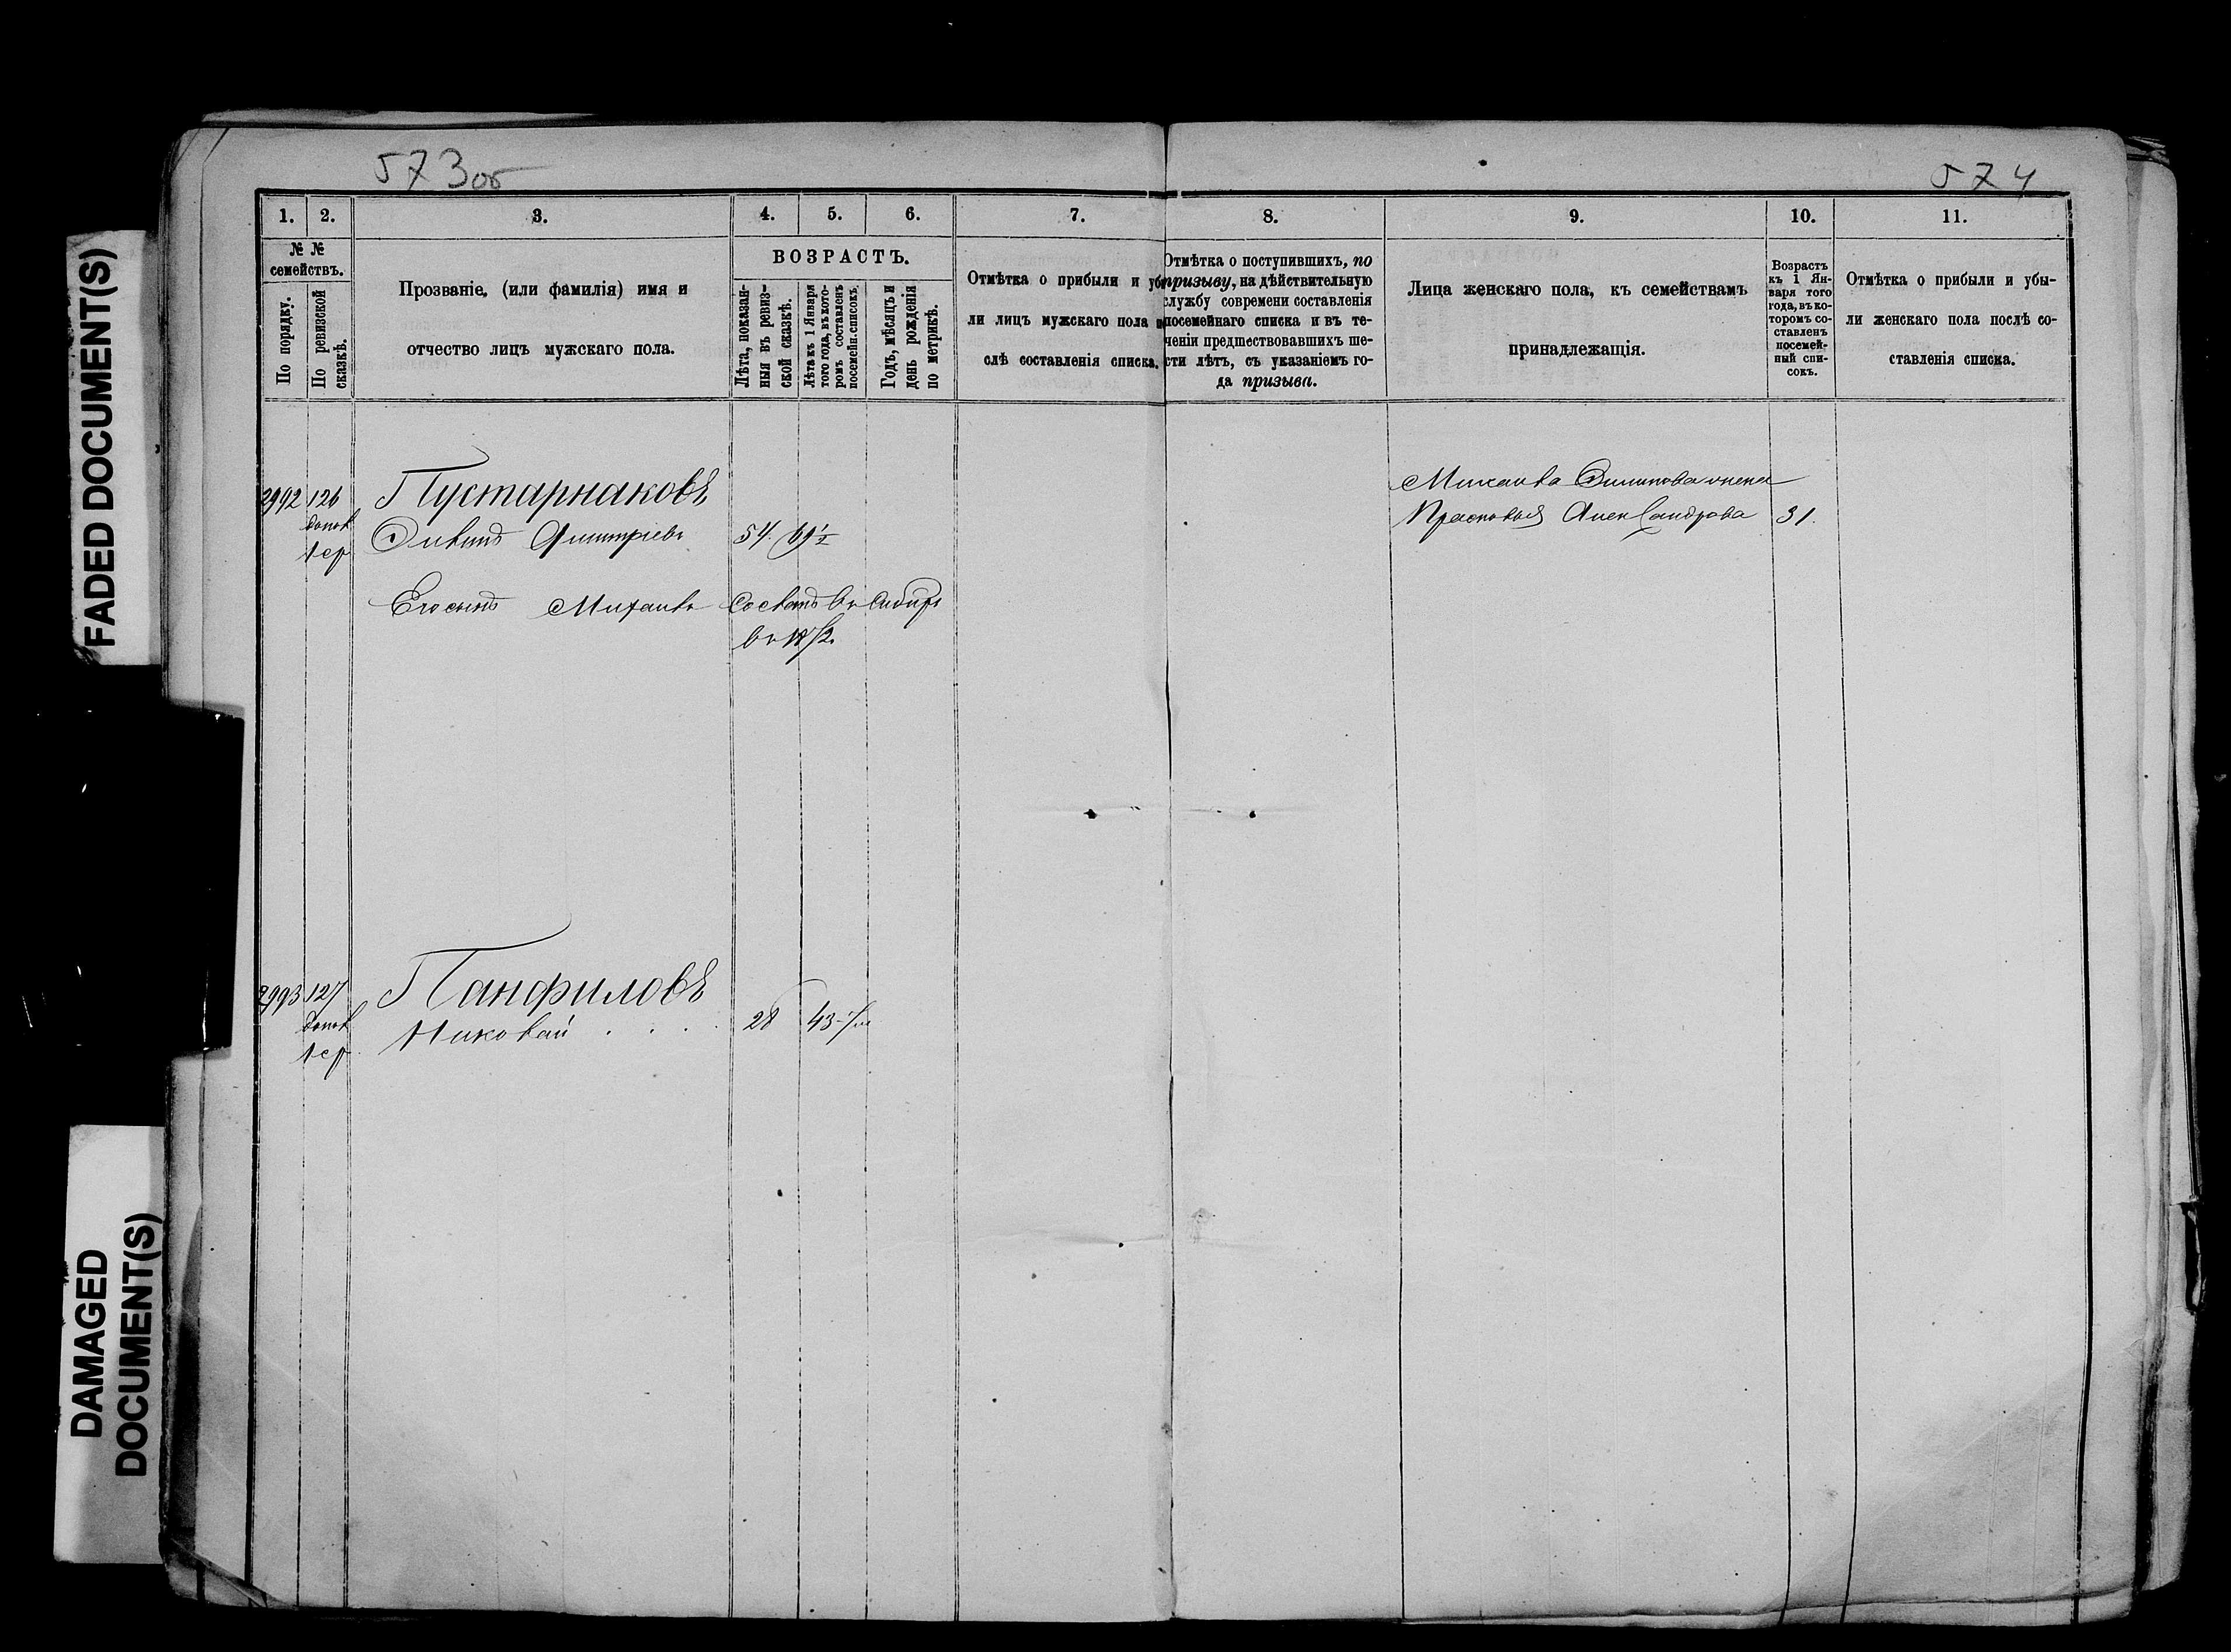 FADED DOCUMENT(S)
DAMAGED
DOCUMENT(S)
573об
574
1. 2. 3. 4. 5. 6. 7. 8. 9. 10. 11.
№ №
семействъ.
По порядку.
По ревизской
сказкѣ.
Прозваніе, (или фамилія) имя и
отчество лицъ мужскаго пола.
ВОЗРАСТЪ.
Лѣта, показан-
ныя въ ревиз-
ской сказкѣ.
Лѣта къ 1 Января
того года, въ кото-
ромъ составленъ
посемейн. списокъ.
Годъ, мѣсяцъ и
день рожденія
по метрикѣ.
Отмѣтка о прибыли и убы-
ли лицъ мужскаго пола
слѣ составленія списка.
Отмѣтка о поступившихъ, по
призыву, на дѣйствительную
службу современи составленія
посемейнаго списка и въ те-
ченіи предшествовавшихъ ше-
сти лѣтъ, съ указаніемъ го-
да призыва.
Лица женскаго пола, къ семействамъ
принадлежащія.
Возрастъ
къ 1 Ян-
варя того
года, въ ко-
торомъ со-
ставленъ
посемей-
ный спи-
сокъ.
Отмѣтка о прибыли и убы-
ли женскаго пола послѣ со-
ставленія списка.
2992 126 Пустарнаковъ
допол
1 ср Дмитріевъ 54
Его сынъ Михаилъ Сосланъ въ Сибирь
въ 1872.
Михаила жена
Прасковья Александрова 31.
2993 127 Панфиловъ
допол Николай . . . . 28 43
1 ср.